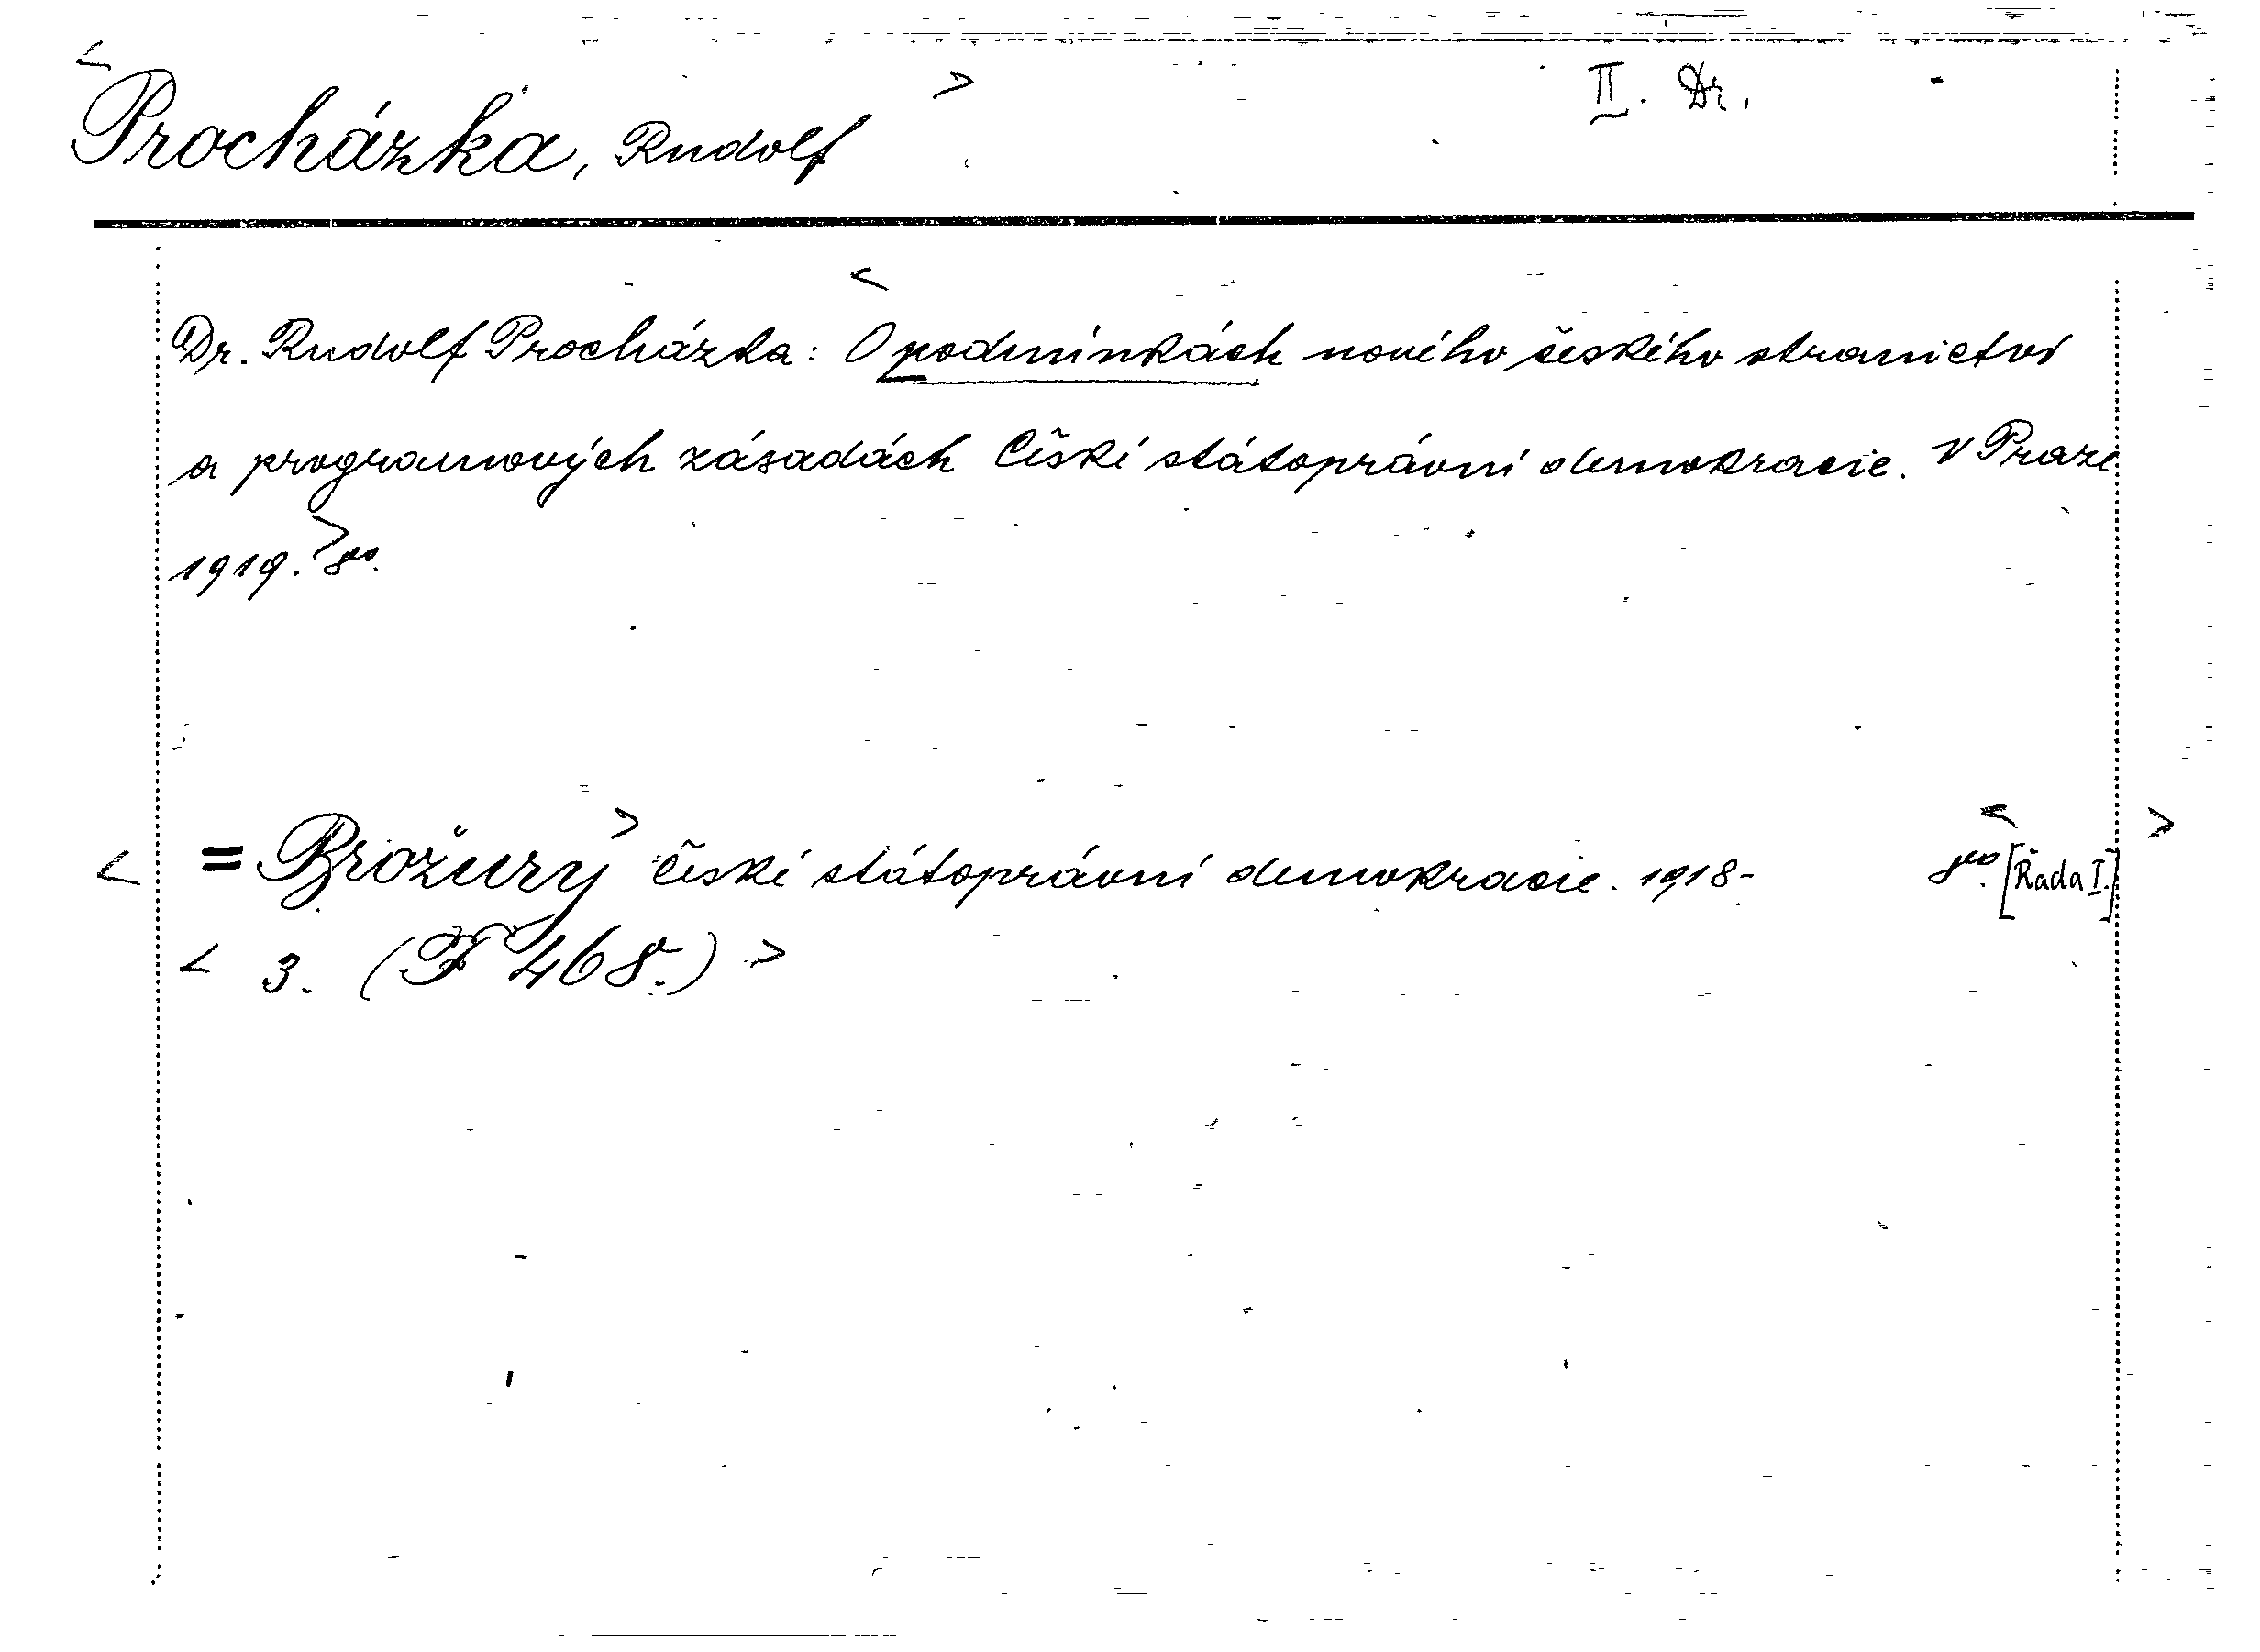 < Procházka, Rudolf > II. Dr.
Dr. Rudolf Procházka: < O podmínkách nového českého stranictví
a programových zásadách České státoprávní demokracie. V Praze
1919. > 8vo.
< = Brožury > české státoprávní demokracie. 1918- 8vo. < [Řada I.] >
< 3. (F 468.) >